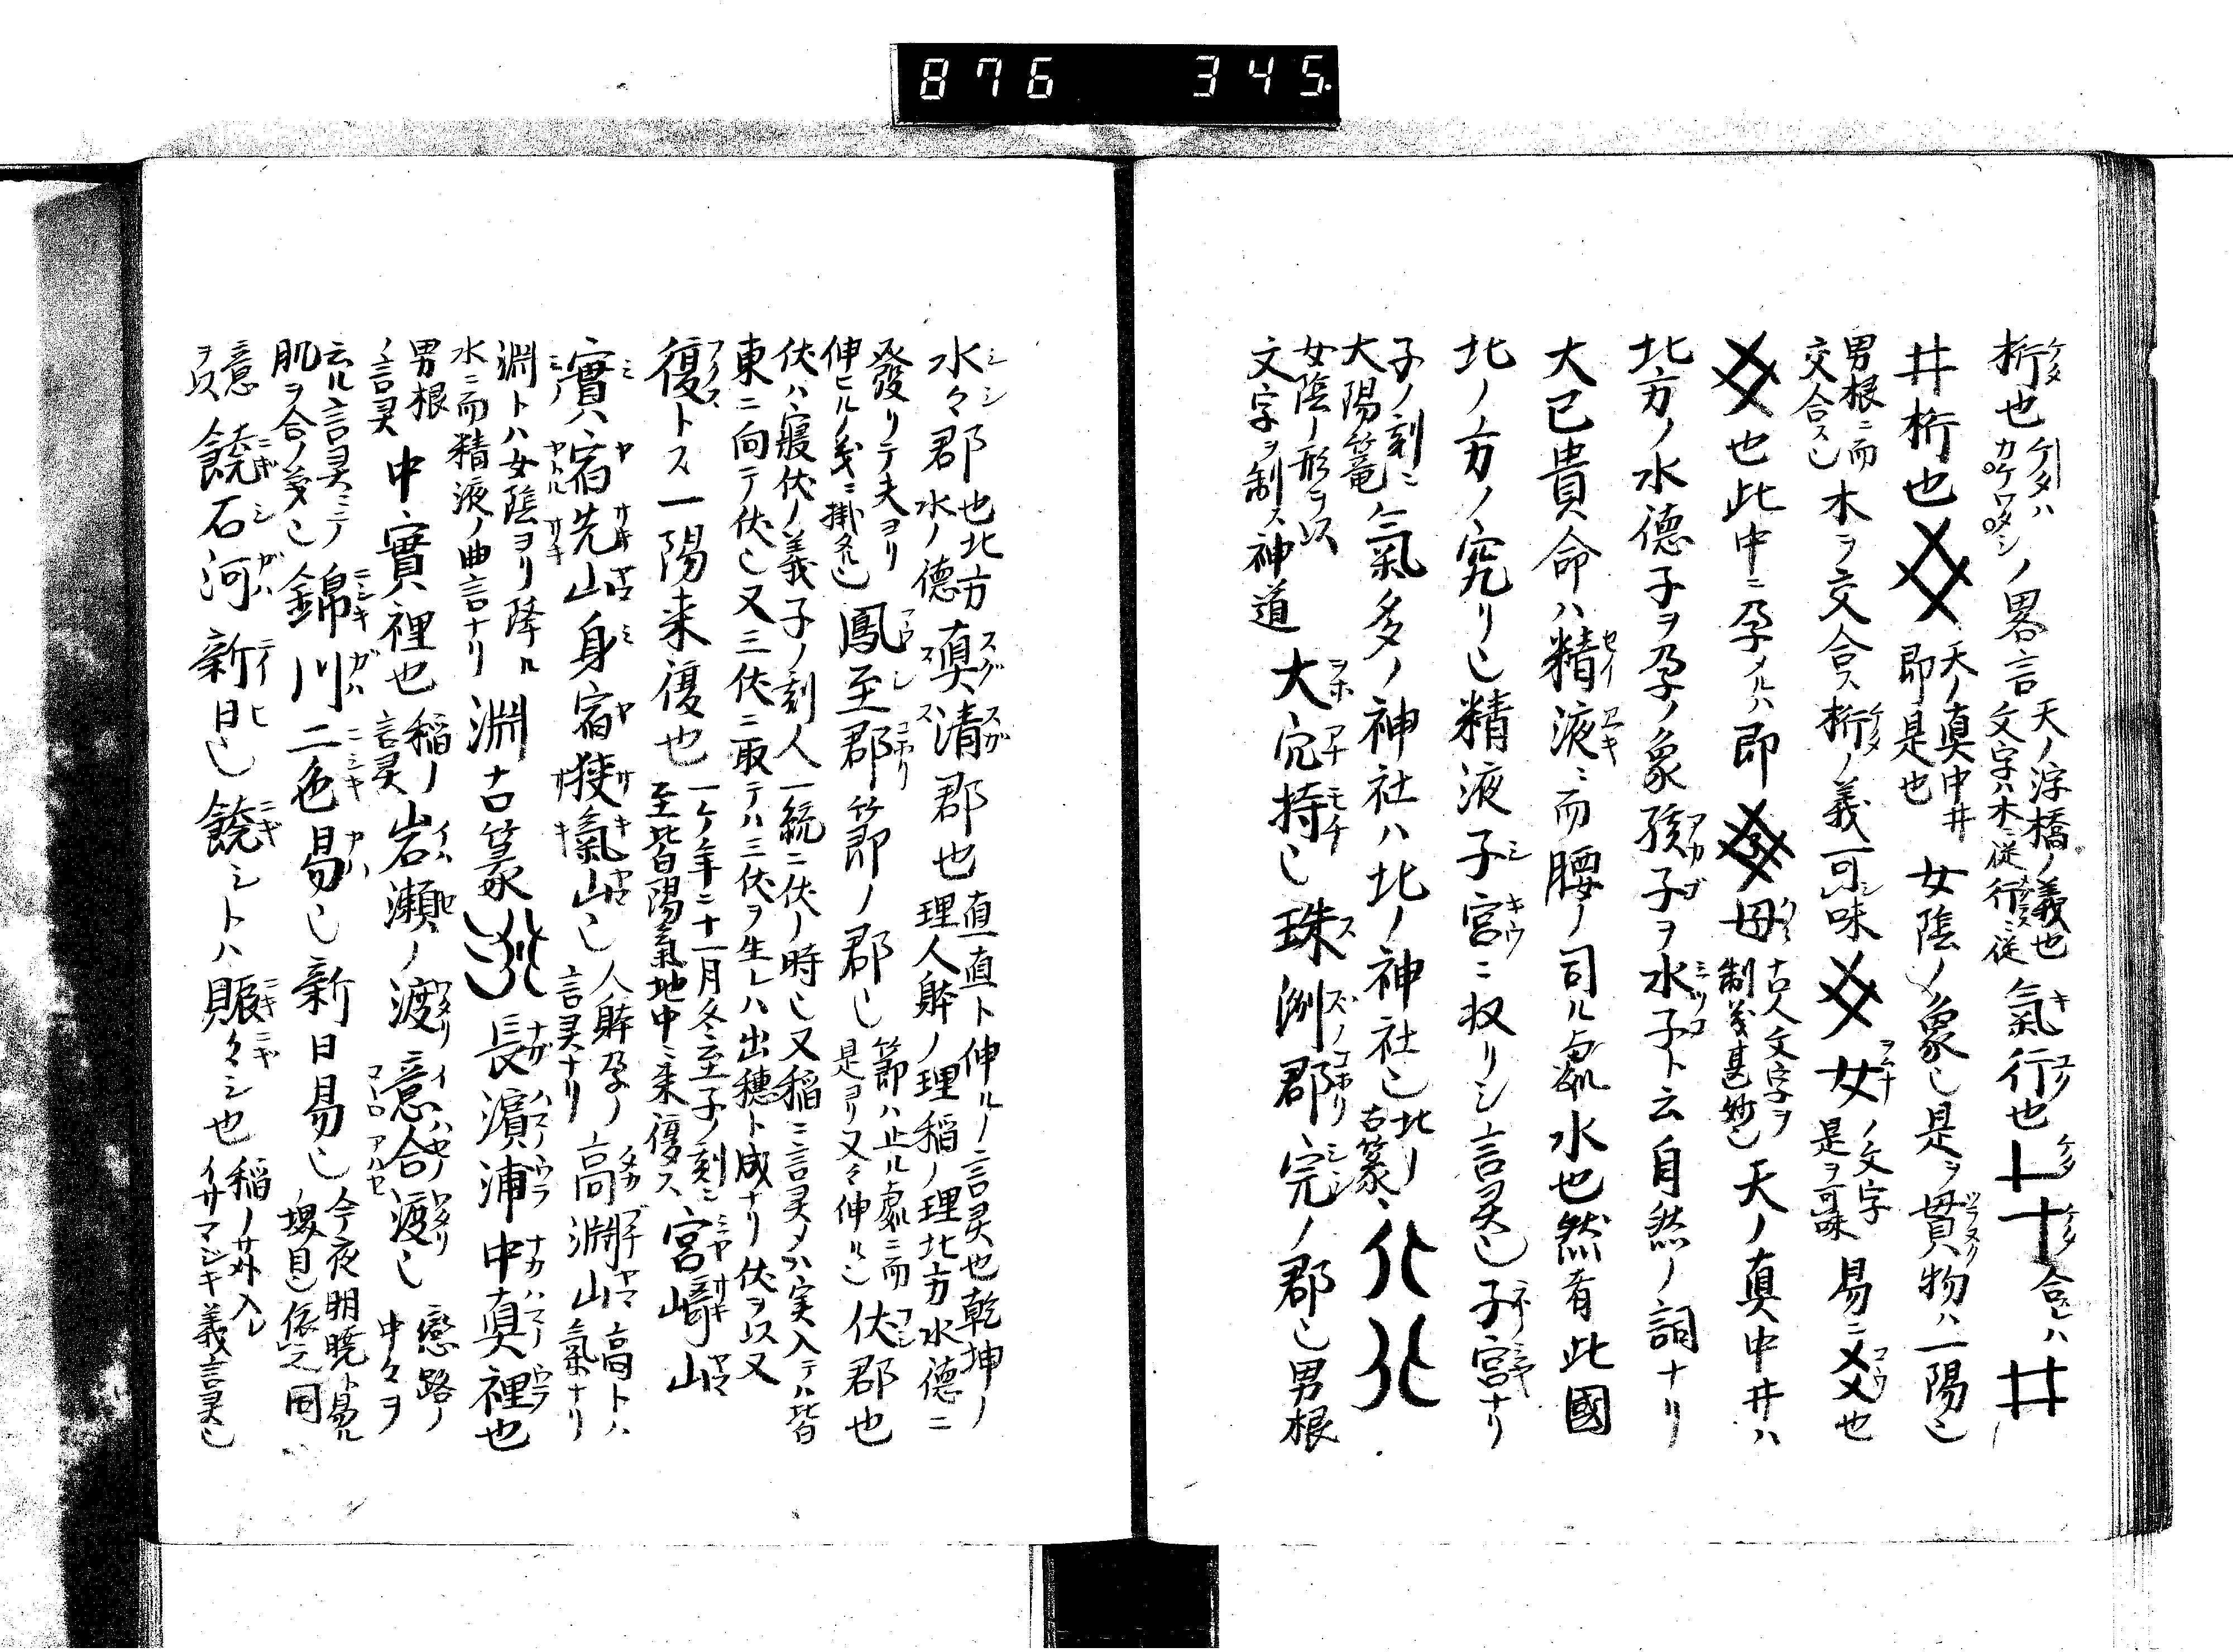 876 345.
桁也ケタハカケワタシノ畧言天ノ浮橋ノ義也文字ハ木ニ従行ニ従氣行也 合ハ井
井桁也 天ノ真中井即是也女陰ノ象也是ヲ貫物ハ一陽也
男根ニ而交合ス也木ヲ交合ス桁ノ義可味 女ノ文字是ヲ可味易ニ爻也
也此中ニ孕メルハ即 母古人文字ヲ制義甚妙也天ノ真中井ハ
北方ノ水徳子ヲ孕ノ象孩子ヲ水子ト云自然ノ詞ナリ
大已貴命ハ精液ニ而腰ノ司ル處水也然者此國
北ノ方ノ究リ也精液子宮ニ収リシ言灵也子宮ナリ
子ノ刻ニ大陽篭氣多ノ神社ハ北ノ神社也北ノ古篆ニ
女陰ノ形ヲ以文字ヲ制ス神道大穴持也珠洲郡完ノ郡也男根
水々郡也北方水ノ徳真清郡也直一直ト伸ルノ言灵也乾坤ノ理人躰ノ理稲ノ理北方水徳ニ
發リテ夫ヨリ伸ヒルノ義ニ掛タル也鳳至郡節ノ郡也節ハ止ル處ニ而是ヨリ又々伸ル也伏郡也
伏ハ寝伏ノ義子ノ刻人一統ニ伏ノ時也又稲ニ言灵タハ実入テハ皆
東ニ向テ伏也又三伏ニ取テハ三伏ヲ生レハ出穂ト成ナリ伏ヲ以又
復トス一陽来復也一ケ年ニ十一月冬至子ノ刻ニ至皆陽氣地中ニ来復ス宮﨑山
實ハ宿先山身宿狭氣山也人躰孕ノ言灵ナリ高淵山高トハ氣ナリ
淵トハ女陰ヨリ降ル水ニ而精液ノ曲言ナリ淵古篆 長濵浦中真裡也
男根ノ言灵中實裡也稲ノ言灵岩瀬ノ渡意合渡也戀路ノ中々ヲ
云ル言灵ニテ肌ヲ合ノ義也錦川二色易也新日易也今夜明暁ト易ル堺目也依之同
意ヲ以饒石河新日也饒シトハ賑々シ也稲ノ外入レイサマシキ義言灵也